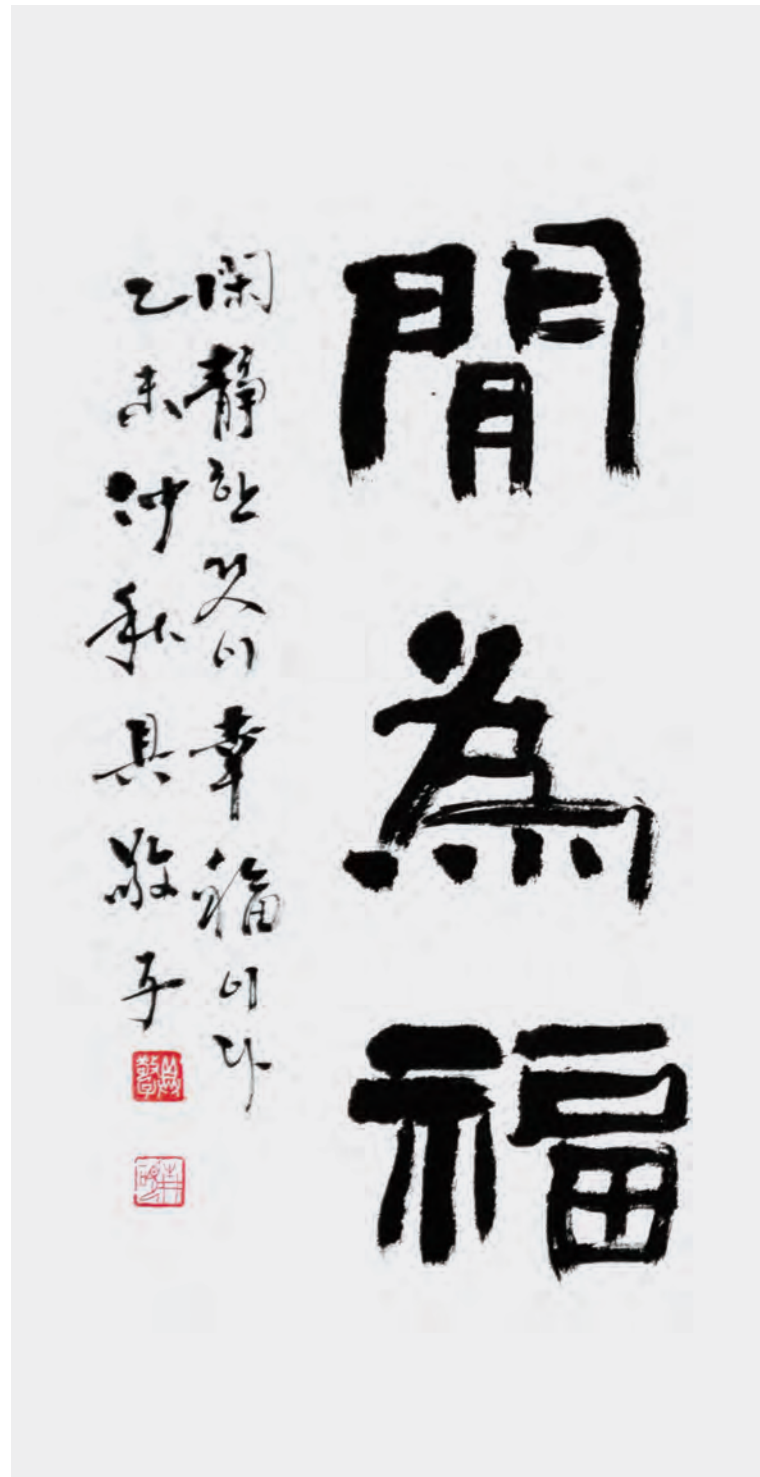 閒為福
閑靜한 것이 幸福이다
乙未 仲秋 具敬子